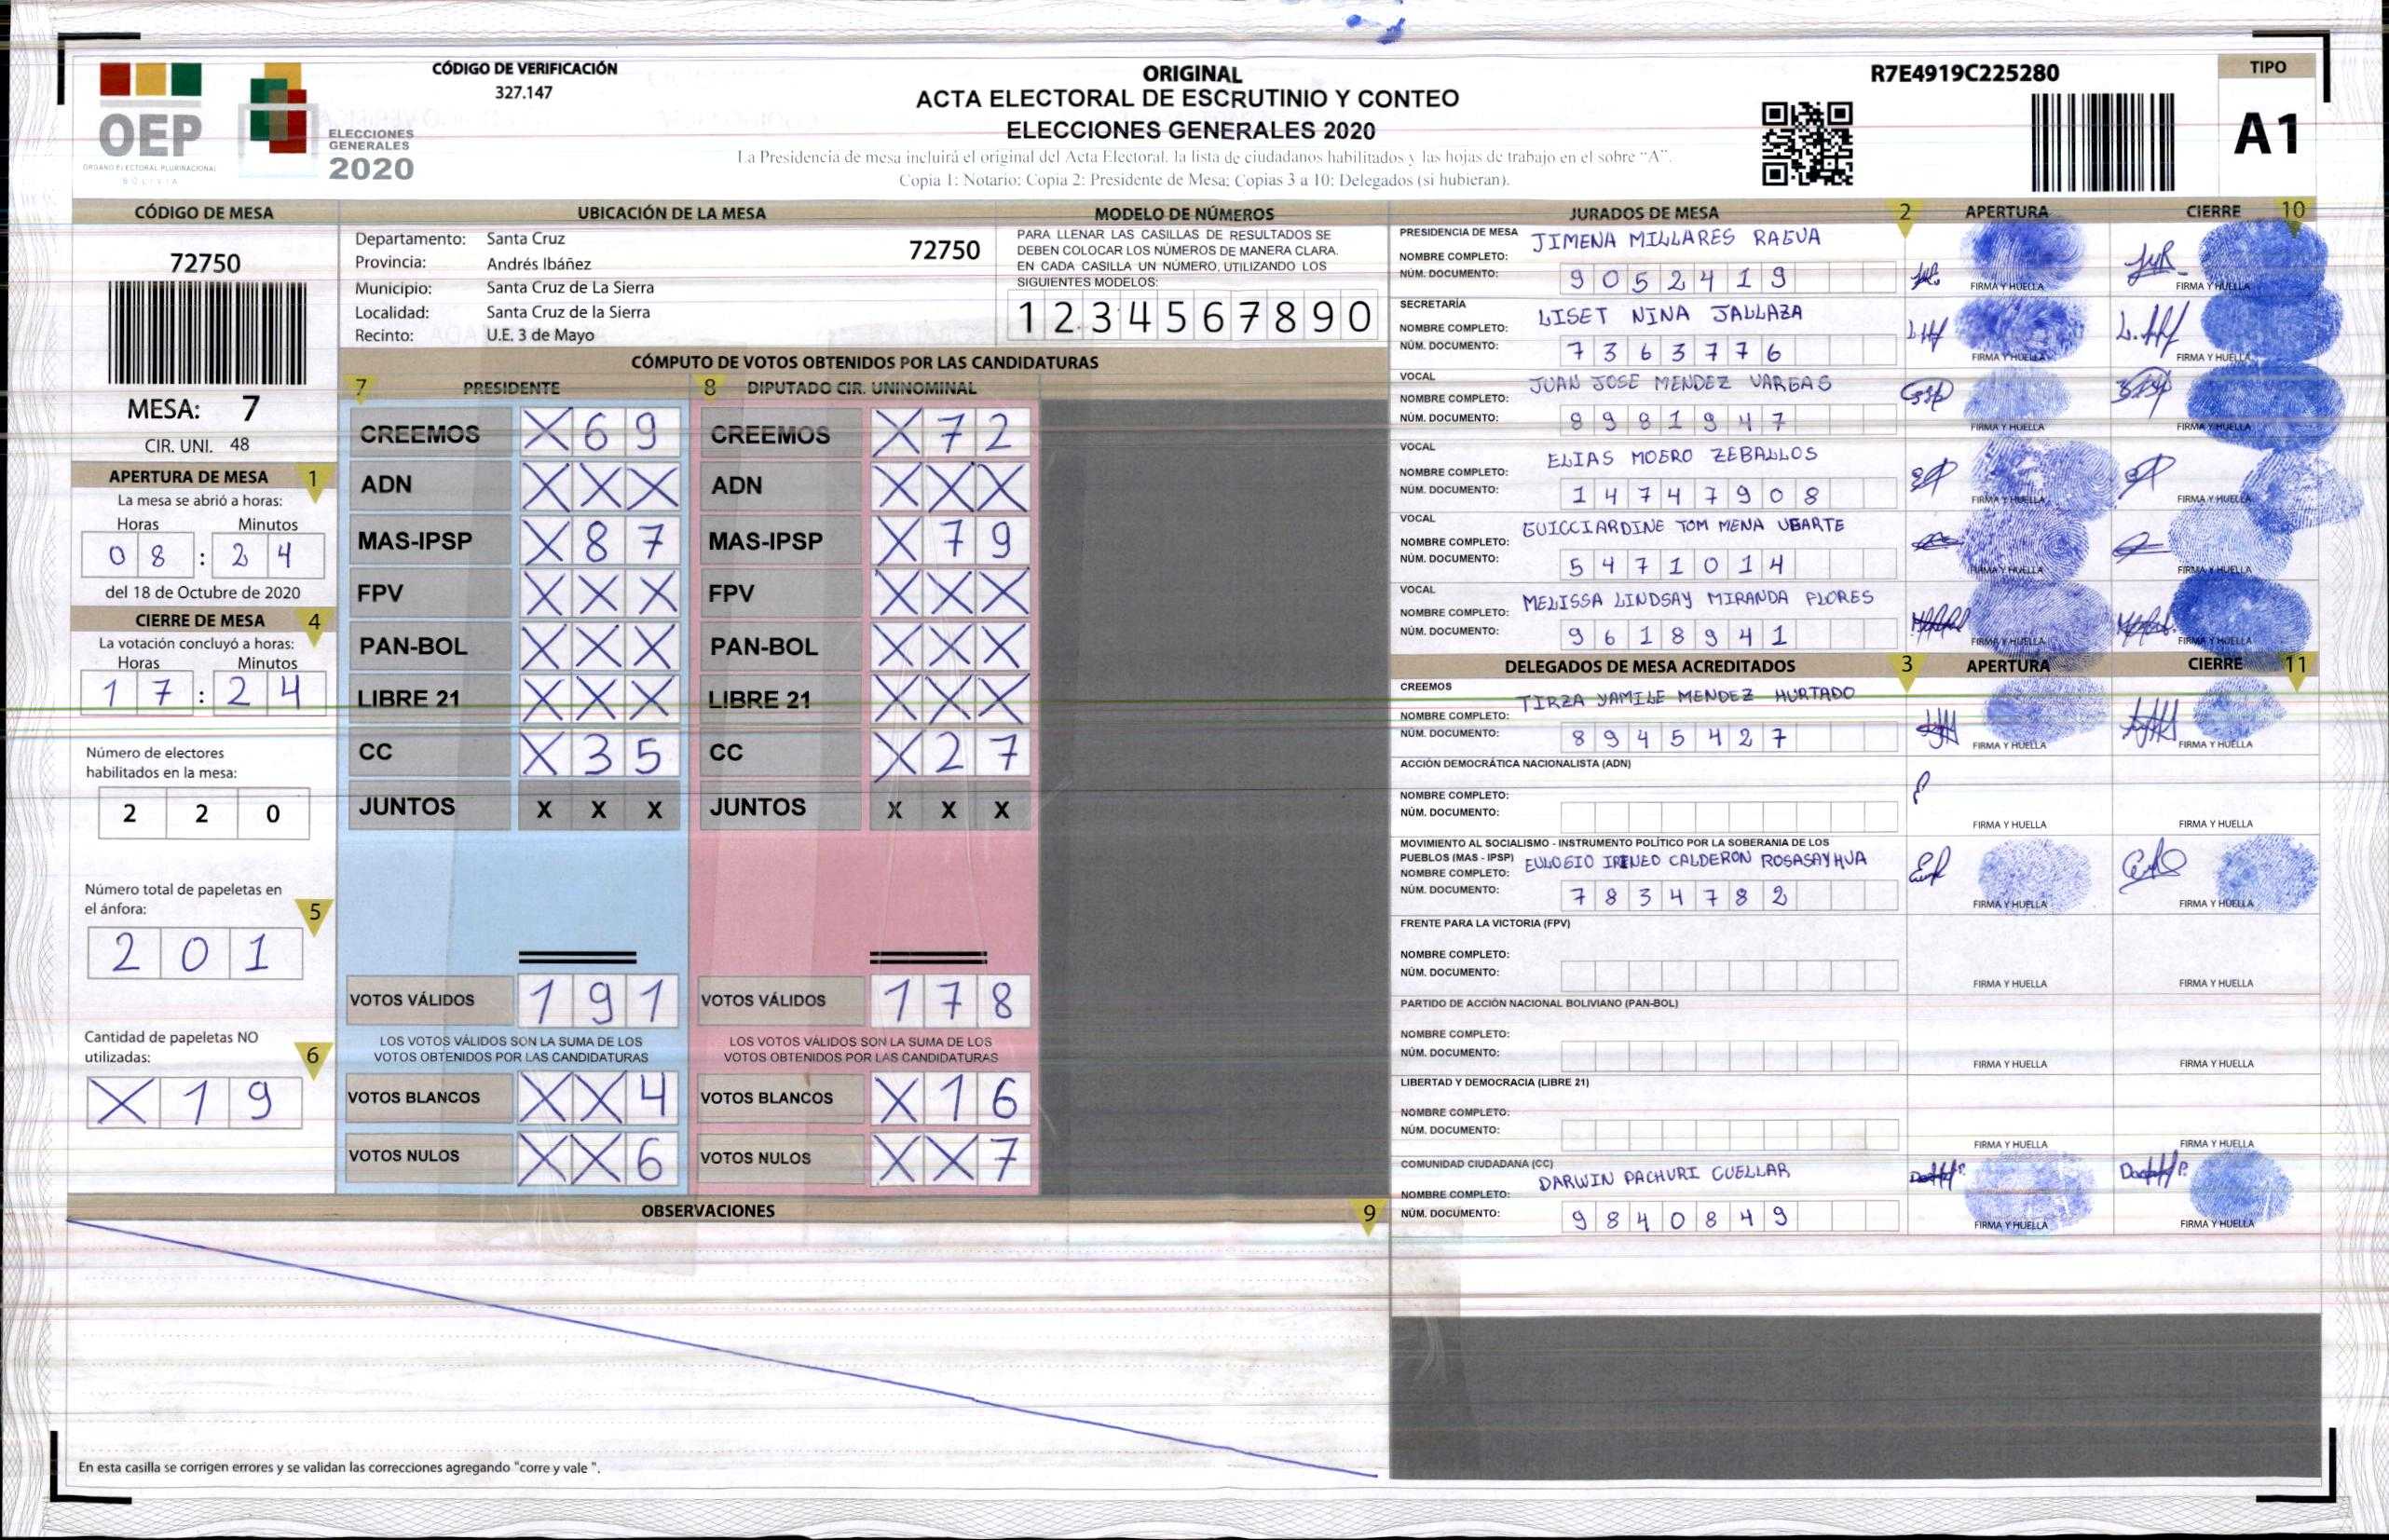 OEP
ÓRGANO ELECTORAL PLURINACIONAL
BOLIVIA
ELECCIONES
GENERALES
2020
CÓDIGO DE VERIFICACIÓN
327.147
ORIGINAL
ACTA ELECTORAL DE ESCRUTINIO Y CONTEO
ELECCIONES GENERALES 2020
La Presidencia de mesa incluirá el original del Acta Electoral, la lista de ciudadanos habilitados y las hojas de trabajo en el sobre "A".
Copia 1: Notario; Copia 2: Presidente de Mesa; Copias 3 a 10: Delegados (si hubieran).
R7E4919C225280
TIPO
A1
CÓDIGO DE MESA
72750
MESA: 7
CIR. UNI. 48
APERTURA DE MESA 1
La mesa se abrió a horas:
Horas Minutos
08 : 24
del 18 de Octubre de 2020
CIERRE DE MESA 4
La votación concluyó a horas:
Horas Minutos
17 : 24
Número de electores
habilitados en la mesa:
2 2 0
Número total de papeletas en
el ánfora: 5
2 0 1
Cantidad de papeletas NO
utilizadas: 6
X 1 9
UBICACIÓN DE LA MESA
Departamento: Santa Cruz 72750
Provincia: Andrés Ibáñez
Municipio: Santa Cruz de La Sierra
Localidad: Santa Cruz de la Sierra
Recinto: U.E. 3 de Mayo
MODELO DE NÚMEROS
PARA LLENAR LAS CASILLAS DE RESULTADOS SE
DEBEN COLOCAR LOS NÚMEROS DE MANERA CLARA.
EN CADA CASILLA UN NÚMERO, UTILIZANDO LOS
SIGUIENTES MODELOS:
1 2 3 4 5 6 7 8 9 0
CÓMPUTO DE VOTOS OBTENIDOS POR LAS CANDIDATURAS
7 PRESIDENTE 8 DIPUTADO CIR. UNINOMINAL
CREEMOS X 6 9 CREEMOS X 7 2
ADN X X X ADN X X X
MAS-IPSP X 8 7 MAS-IPSP X 7 9
FPV X X X FPV X X X
PAN-BOL X X X PAN-BOL X X X
LIBRE 21 X X X LIBRE 21 X X X
CC X 3 5 CC X 2 7
JUNTOS X X X JUNTOS X X X
VOTOS VÁLIDOS 1 9 1 VOTOS VÁLIDOS 1 7 8
LOS VOTOS VÁLIDOS SON LA SUMA DE LOS LOS VOTOS VÁLIDOS SON LA SUMA DE LOS
VOTOS OBTENIDOS POR LAS CANDIDATURAS VOTOS OBTENIDOS POR LAS CANDIDATURAS
VOTOS BLANCOS X X 4 VOTOS BLANCOS X 1 6
VOTOS NULOS X X 6 VOTOS NULOS X X 7
OBSERVACIONES 9
En esta casilla se corrigen errores y se validan las correcciones agregando "corre y vale ".
JURADOS DE MESA 2 APERTURA CIERRE 10
PRESIDENCIA DE MESA JIMENA MILLARES RAGUA
NOMBRE COMPLETO:
NÚM. DOCUMENTO: 9052419 FIRMA Y HUELLA FIRMA Y HUELLA
SECRETARÍA LISET NINA JALLAZA
NOMBRE COMPLETO:
NÚM. DOCUMENTO: 7363776 FIRMA Y HUELLA FIRMA Y HUELLA
VOCAL JUAN JOSE MENDEZ VARGAS
NOMBRE COMPLETO:
NÚM. DOCUMENTO: 8981947 FIRMA Y HUELLA FIRMA Y HUELLA
VOCAL ELIAS MOERO ZEBALLOS
NOMBRE COMPLETO:
NÚM. DOCUMENTO: 14747908 FIRMA Y HUELLA FIRMA Y HUELLA
VOCAL GUICCIARDINE TOM MENA UGARTE
NOMBRE COMPLETO:
NÚM. DOCUMENTO: 5471014 FIRMA Y HUELLA FIRMA Y HUELLA
VOCAL MELISSA LINDSAY MIRANDA FLORES
NOMBRE COMPLETO:
NÚM. DOCUMENTO: 9618941 FIRMA Y HUELLA FIRMA Y HUELLA
DELEGADOS DE MESA ACREDITADOS 3 APERTURA CIERRE 11
CREEMOS TIRZA YAMILE MENDEZ HURTADO
NOMBRE COMPLETO:
NÚM. DOCUMENTO: 8945427 FIRMA Y HUELLA FIRMA Y HUELLA
ACCIÓN DEMOCRÁTICA NACIONALISTA (ADN)
NOMBRE COMPLETO:
NÚM. DOCUMENTO: FIRMA Y HUELLA FIRMA Y HUELLA
MOVIMIENTO AL SOCIALISMO - INSTRUMENTO POLÍTICO POR LA SOBERANIA DE LOS
PUEBLOS (MAS - IPSP) EULOGIO IRINEO CALDERON ROSASAYHUA
NOMBRE COMPLETO:
NÚM. DOCUMENTO: 7834782 FIRMA Y HUELLA FIRMA Y HUELLA
FRENTE PARA LA VICTORIA (FPV)
NOMBRE COMPLETO:
NÚM. DOCUMENTO: FIRMA Y HUELLA FIRMA Y HUELLA
PARTIDO DE ACCIÓN NACIONAL BOLIVIANO (PAN-BOL)
NOMBRE COMPLETO:
NÚM. DOCUMENTO: FIRMA Y HUELLA FIRMA Y HUELLA
LIBERTAD Y DEMOCRACIA (LIBRE 21)
NOMBRE COMPLETO:
NÚM. DOCUMENTO: FIRMA Y HUELLA FIRMA Y HUELLA
COMUNIDAD CIUDADANA (CC) DARWIN PACHURI CUELLAR
NOMBRE COMPLETO:
NÚM. DOCUMENTO: 9840849 FIRMA Y HUELLA FIRMA Y HUELLA